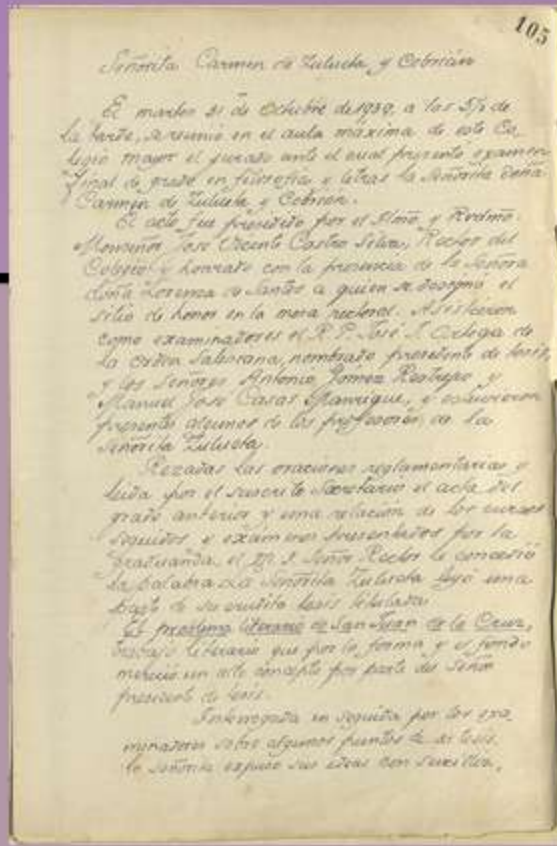 105
Señorita Carmen de Zulueta y Cebrián
El martes 31 de Octubre de 1939, a las 5½ de
la tarde, se reunió en el aula máxima de este Co-
legio mayor el jurado ante el cual presentó examen
final de grado en filosofía y letras la señorita doña
Carmen de Zulueta y Cebrián.
El acto fue presidido por el Ilmo. y Rvdmo.
Monseñor José Vicente Castro Silva, Rector del
Colegio y honrado con la presencia de la Señora
doña Lorenza de Santos a quien se designó el
sitio de honor en la mesa rectoral. Asistieron
como examinadores el R. P. José J. Ortega de
la orden Salesiana, nombrado presidente de tesis,
y los señores Antonio Gómez Restrepo y
Manuel José Casas Manrique, y estuvieron
presentes algunos de los profesores de la
señorita Zulueta.
Rezadas las oraciones reglamentarias y
leída por el suscrito Secretario el acta del
grado anterior y una relación de los cursos
seguidos y exámenes presentados por la
graduanda, el M. I. Señor Rector le concedió
la palabra. La Señorita Zulueta leyó una
parte de su erudita tesis titulada
El problema literario de San Juan de la Cruz,
trabajo literario que por la forma y el fondo
mereció un alto concepto por parte del Señor
presidente de tesis.
Interrogada en seguida por los exa-
minadores sobre algunos puntos de su tesis
la señorita expuso sus ideas con sencillez,